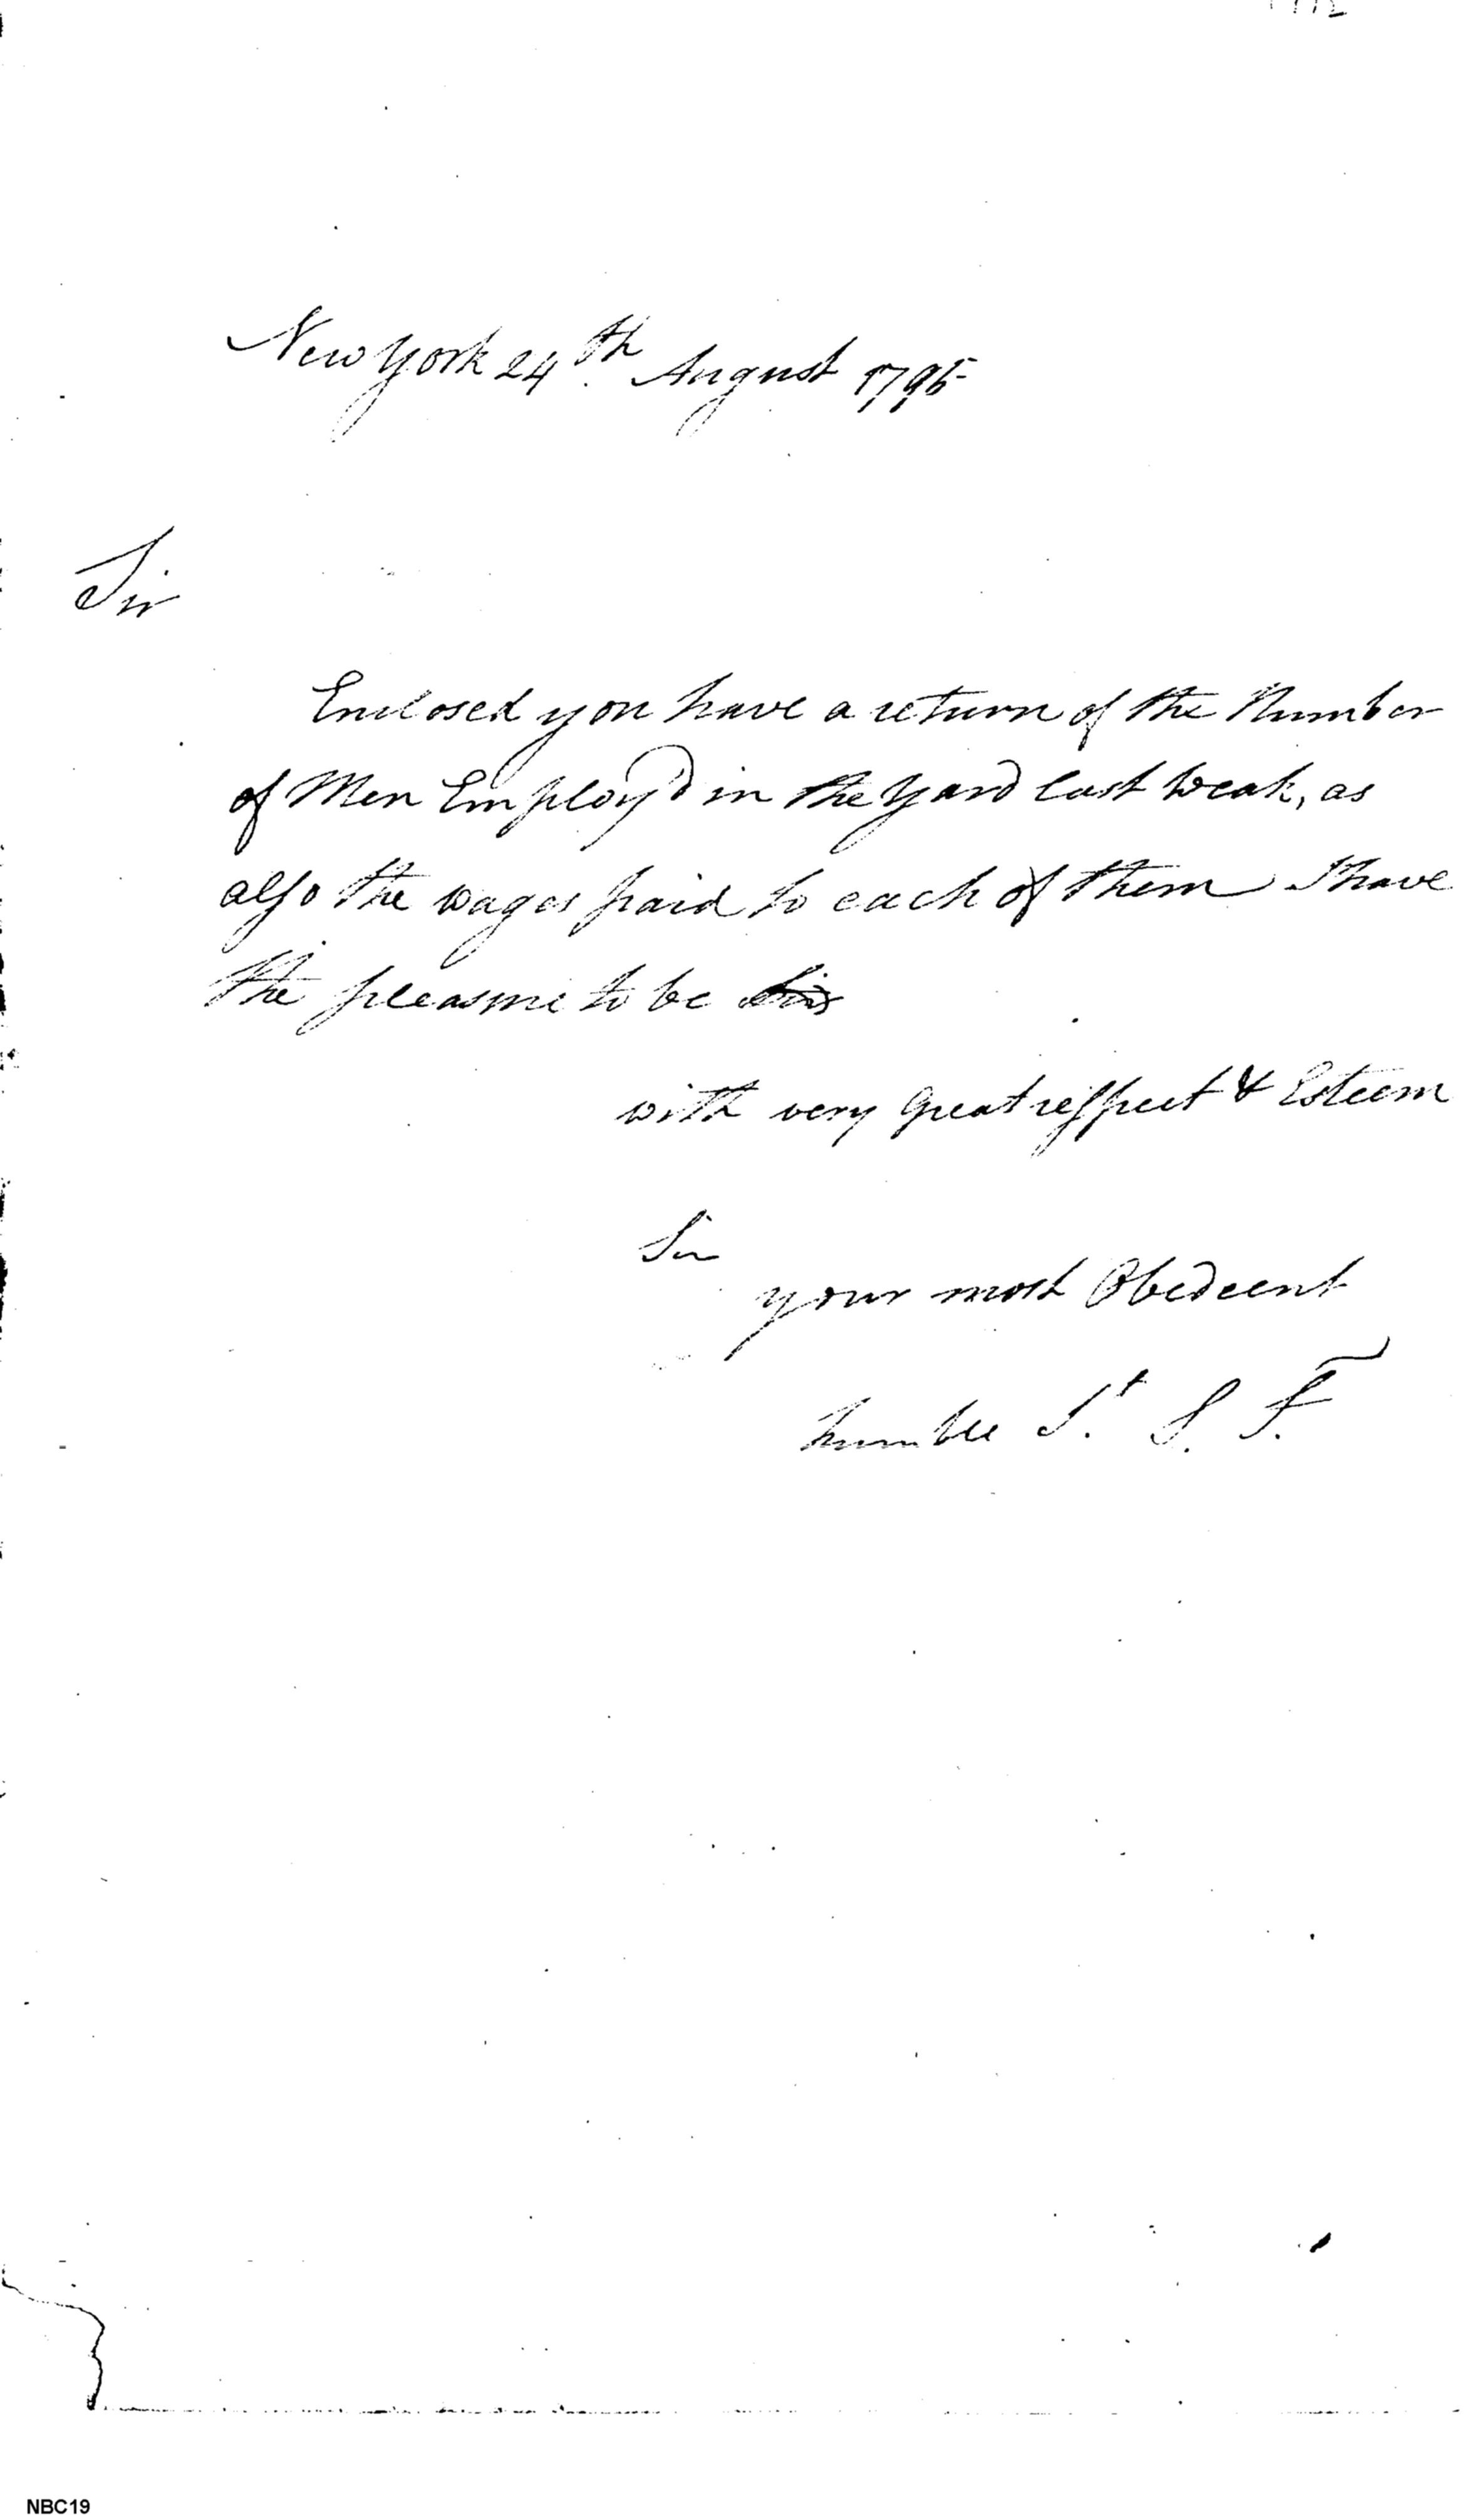 New York 24th. August 1795
Sir
Enclosed you have a return of the Number
of Men Employ'd in the yard last weak, as
also the wages paid to each of them I have
the pleasure to be
with very Great respect & Esteem
Sir
your most Obedient
humble St. S. F.
NBC19